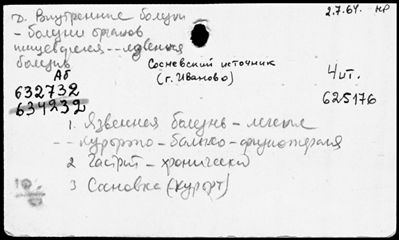 2. Внутренние болезни
2.7.64. НР
- болезни органов
пищеварения -- язвенная
болезнь
Сосневский источник
(г. Иваново)
Аб
632732
634232
Чит.
625176
1. Язвенная болезнь - лечение
-- Курортно - бальнео - физиотерапия
2 Гастрит - хронический
3 Сосновка (курорт)